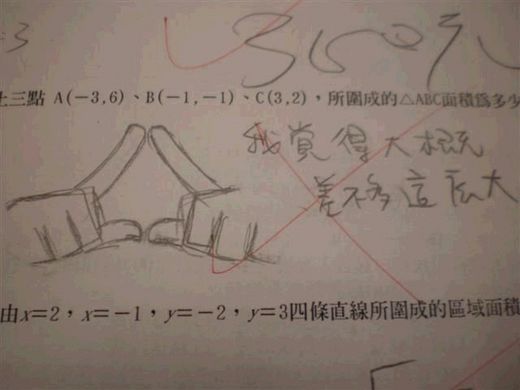 -3
上三點 A(-3,6)、B(-1,-1)、C(3,2)，所圍成的△ABC面積為多少
我覺得大概
差不多這麼大
由x=2，x=-1，y=-2，y=3四條直線所圍成的區域面積